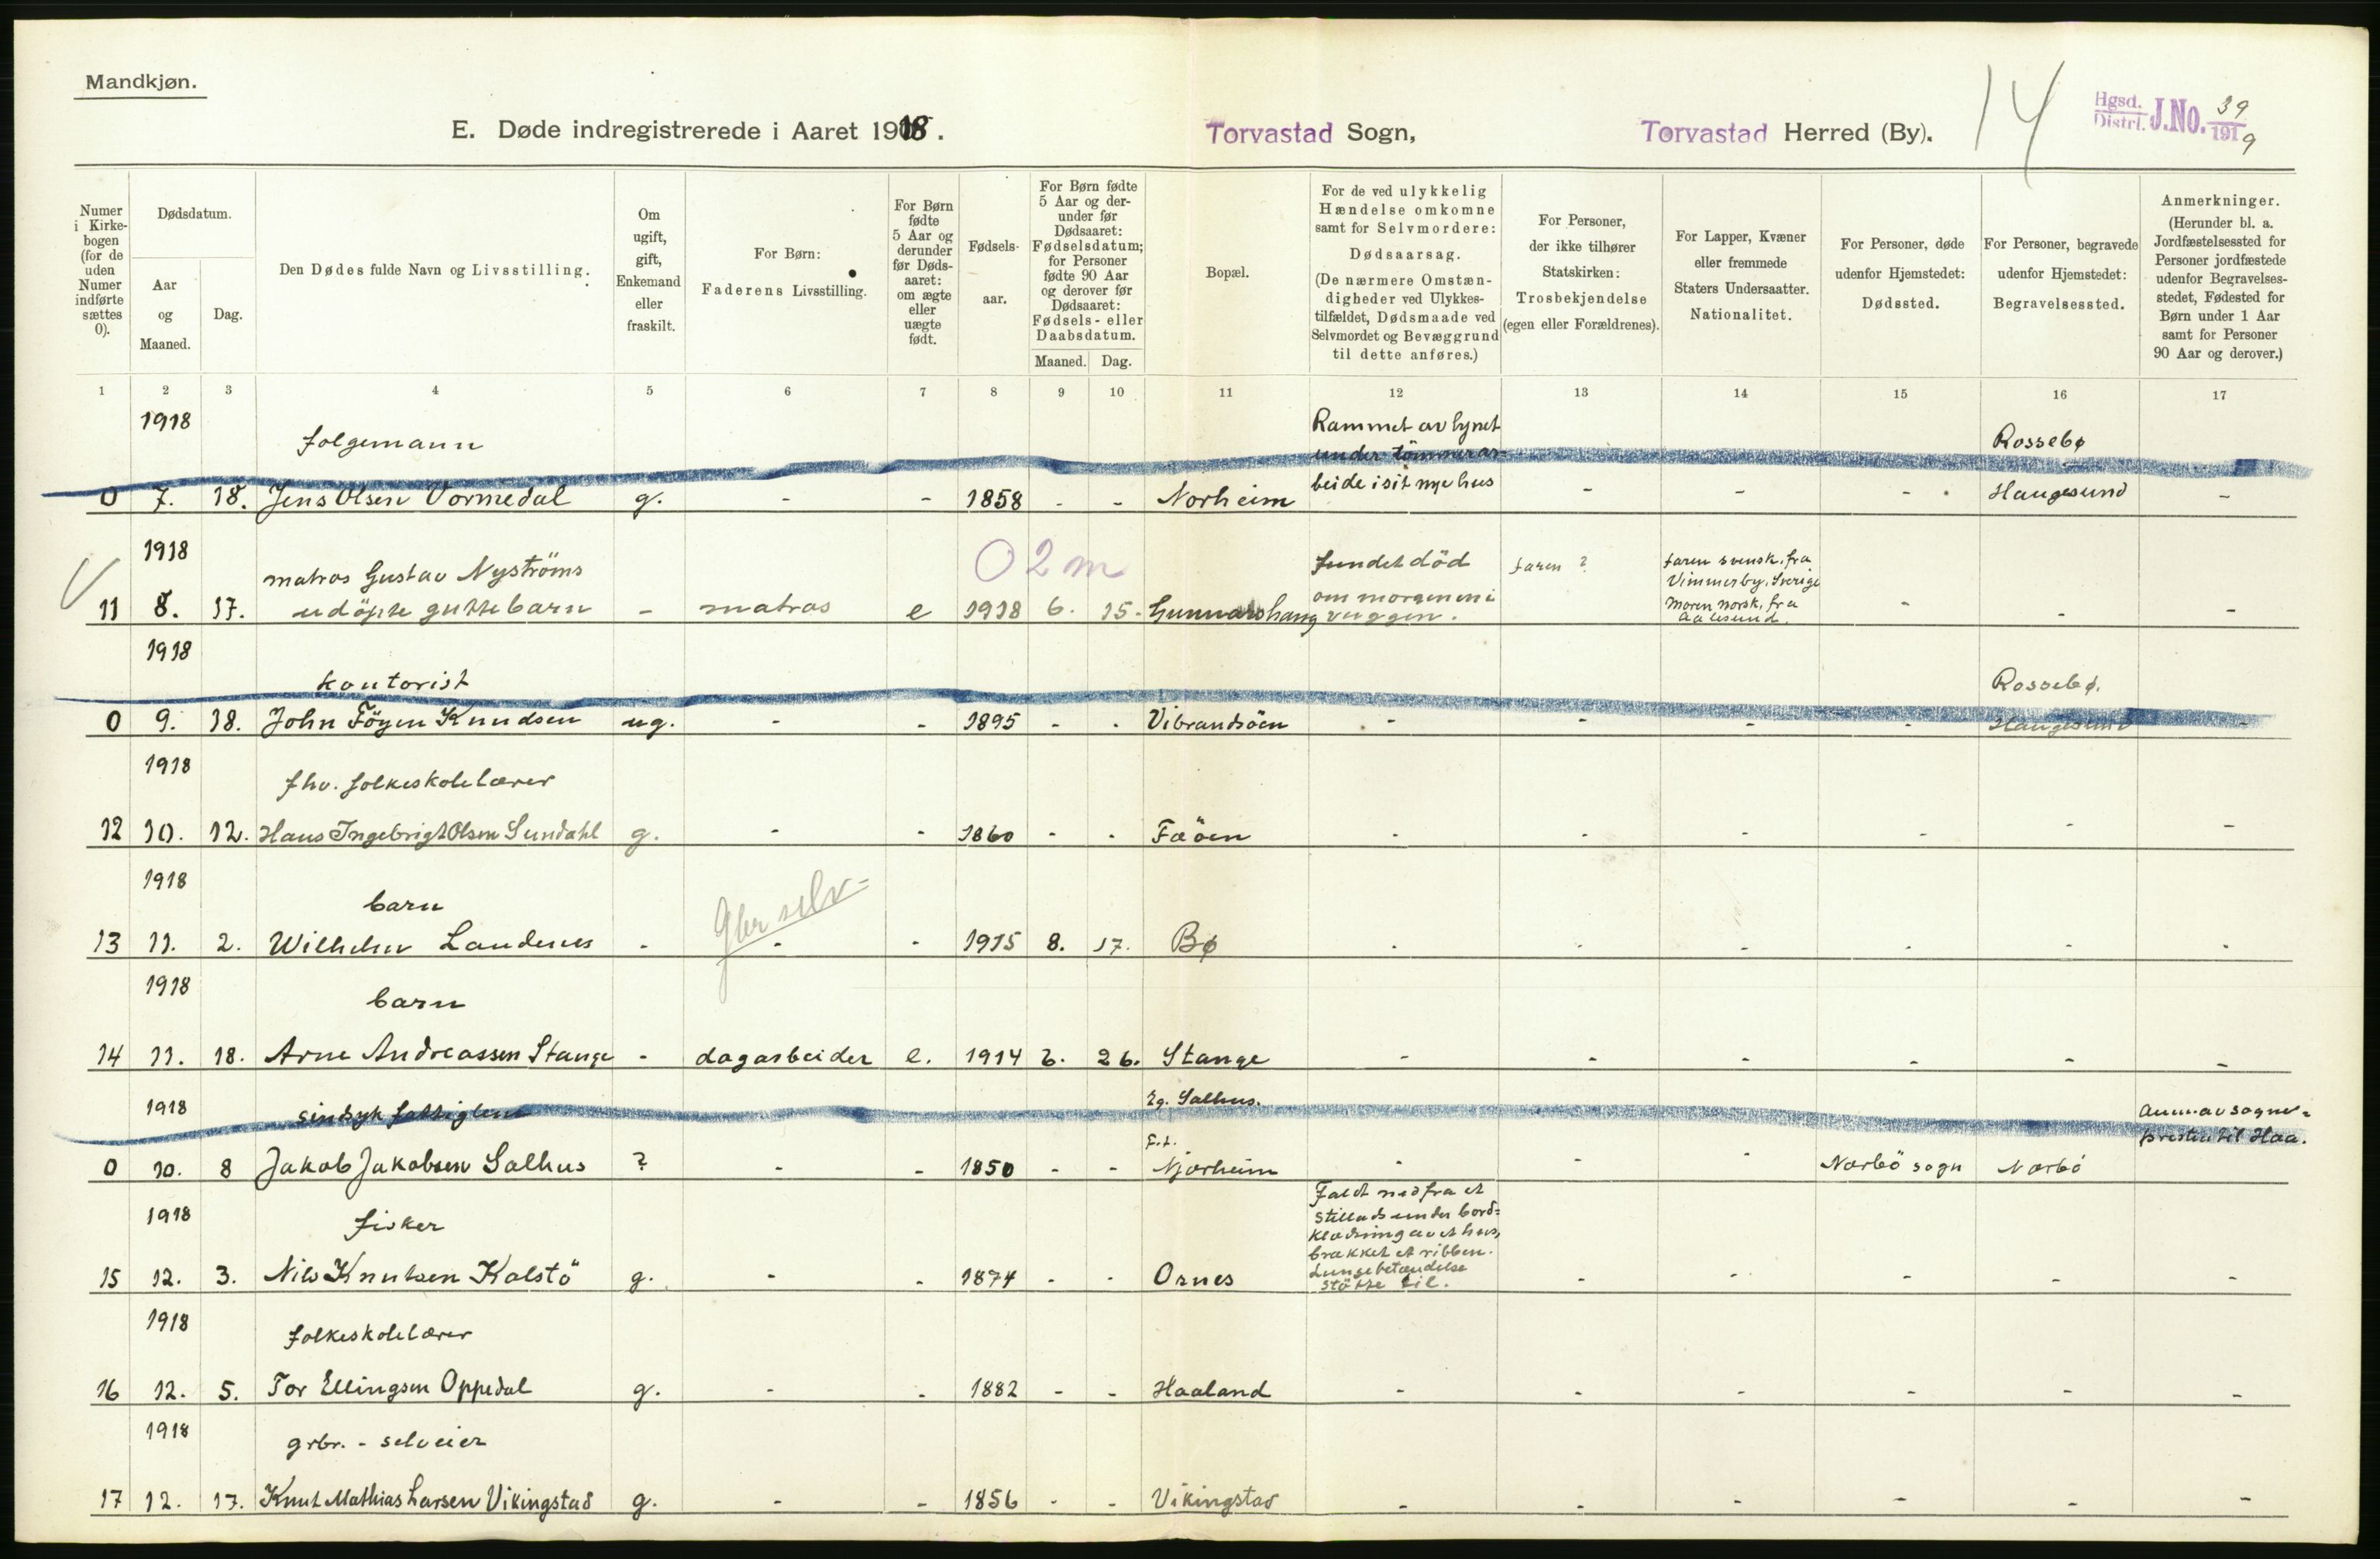 Mandkjøn.
E. Døde indregistrerede i Aaret 1918.
Torvastad Sogn,
Torvastad Herred (By).
14
Hgsd. Distrl. J.No. 39/1919
Numer i Kirke-bogen (for de uden Numer indførte sættes 0).
Dødsdatum.
Aar og Maaned.
Dag.
Den Dødes fulde Navn og Livsstilling.
Om ugift, gift, Enkemand eller fraskilt.
For Børn: Faderens Livsstilling.
For Børn fødte 5 Aar og derunder før Døds-aaret: om ægte eller uægte født.
Fødsels-aar.
For Børn fødte 5 Aar og der-under før Dødsaaret: Fødselsdatum; for Personer fødte 90 Aar og derover før Dødsaaret: Fødsels- eller Daabsdatum.
Maaned. Dag.
Bopæl.
For de ved ulykkelig Hændelse omkomne samt for Selvmordere: Dødsaarsag. (De nærmere Omstæn-digheder ved Ulykkes-tilfældet, Dødsmaade ved Selvmordet og Bevæggrund til dette anføres.)
For Personer, der ikke tilhører Statskirken: Trosbekjendelse (egen eller Forældrenes).
For Lapper, Kvæner eller fremmede Staters Undersaatter. Nationalitet.
For Personer, døde udenfor Hjemstedet: Dødssted.
For Personer, begravede udenfor Hjemstedet: Begravelsessted.
Anmerkninger. (Herunder bl. a. Jordfæstelsessted for Personer jordfæstede udenfor Begravelses-stedet, Fødested for Børn under 1 Aar samt for Personer 90 Aar og derover.)
1 2 3 4 5 6 7 8 9 10 11 12 13 14 15 16 17
1918
folgemann
Rammet av lynet
under tömmerar-
beide i sit nye hus
Rossebø
0 7. 18. Jens Olsen Vormedal g. - - 1858 - - Norheim - - - Haugesund -
1918
matros Gustav Nyströms
0 2 m
fundet död
om morgenen i
vuggen.
faren ?
faren svensk, fra
Vimmerby, Sverige
moren norsk, fra
Aalesund.
11 8. 17. udöpte guttebarn - matros e 1918 6. 15. Gunnarshaug - - -
1918
kontorist
Rossebø.
0 9. 18. John Föyen Knudsen ug. - - 1895 - - Vibrandsöen - - - - Haugesund -
1918
fhv. folkeskolelærer
12 10. 12. Hans Ingebrigt Olsen Sundahl g. - - 1860 - - Fæöen - - - - - -
1918
barn
Gbr selv-
13 11. 2. Wilhelm Landenes - - - 1915 8. 17. Bø - - - - - -
1918
barn
14 11. 18. Arne Andreassen Stange - dagarbeider e. 1914 2. 26. Stange - - - - - -
1918
sindsyk fattiglem
Eg. Salhus.
F.t.
anm. av sogne-
presten til Haa.
0 10. 8 Jakob Jakobsen Salhus ? - - 1850 - - Njærheim - - - Nærbö sogn Nærbö
1918
fisker
Faldt ned fra et
stillads under bord-
klædning av et hus,
brækket et ribben.
Lungebetændelse
stötte til.
15 12. 3. Nils Knutsen Kalstö g. - - 1874 - - Osnes - - - - -
1918
folkeskolelærer
16 12. 5. Tor Ellingsen Oppedal g. - - 1882 - - Haaland - - - - - -
1918
grbr. - selveier
17 12. 17. Knut Mathias Larsen Vikingstad g. - - 1856 - - Vikingstad - - - - - -